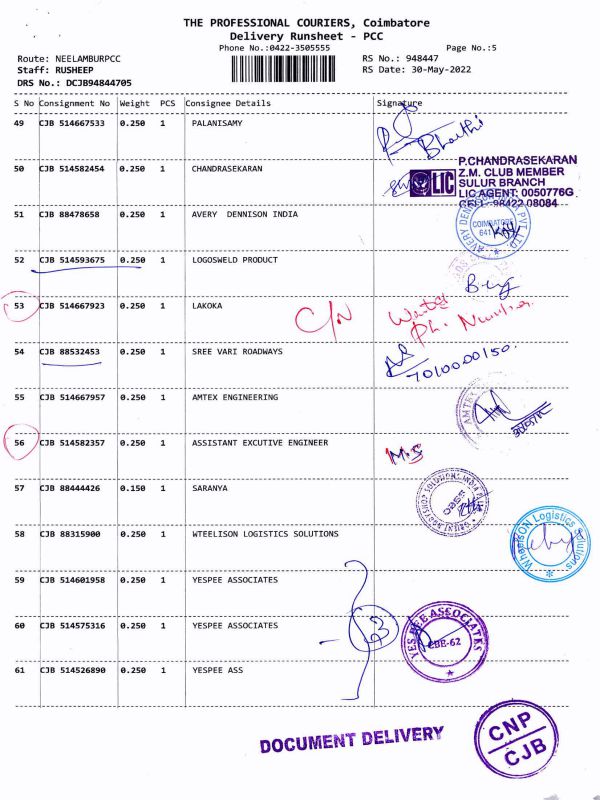 THE PROFESSIONAL COURIERS, Coimbatore
Delivery Runsheet - PCC
Phone No.:0422-3505555 Page No.:5
Route: NEELAMBURPCC RS No.: 948447
Staff: RUSHEEP RS Date: 30-May-2022
DRS No.: DCJB94844705
S No Consignment No Weight PCS Consignee Details Signature
49 CJB 514667533 0.250 1 PALANISAMY
Bharthi
50 CJB 514582454 0.250 1 CHANDRASEKARAN
LIC
P.CHANDRASEKARAN
Z.M. CLUB MEMBER
SULUR BRANCH
LIC AGENT: 0050776G
CELL: 98422 08084
51 CJB 88478658 0.250 1 AVERY DENNISON INDIA
AVERY PVT. LTD.
COIMBATORE
641
52 CJB 514593675 0.250 1 LOGOSWELD PRODUCT
53 CJB 514667923 0.250 1 LAKOKA
C/N
Ph. Number
54 CJB 88532453 0.250 1 SREE VARI ROADWAYS
7010000150.
55 CJB 514667957 0.250 1 AMTEX ENGINEERING
56 CJB 514582357 0.250 1 ASSISTANT EXCUTIVE ENGINEER
M.S
57 CJB 88444426 0.150 1 SARANYA
58 CJB 88315900 0.250 1 WTEELISON LOGISTICS SOLUTIONS
WheelsON Logistics Solutions
59 CJB 514601958 0.250 1 YESPEE ASSOCIATES
60 CJB 514575316 0.250 1 YESPEE ASSOCIATES
YES PEE ASSOCIATES
CBE-62
61 CJB 514526890 0.250 1 YESPEE ASS
DOCUMENT DELIVERY
CNP
CJB